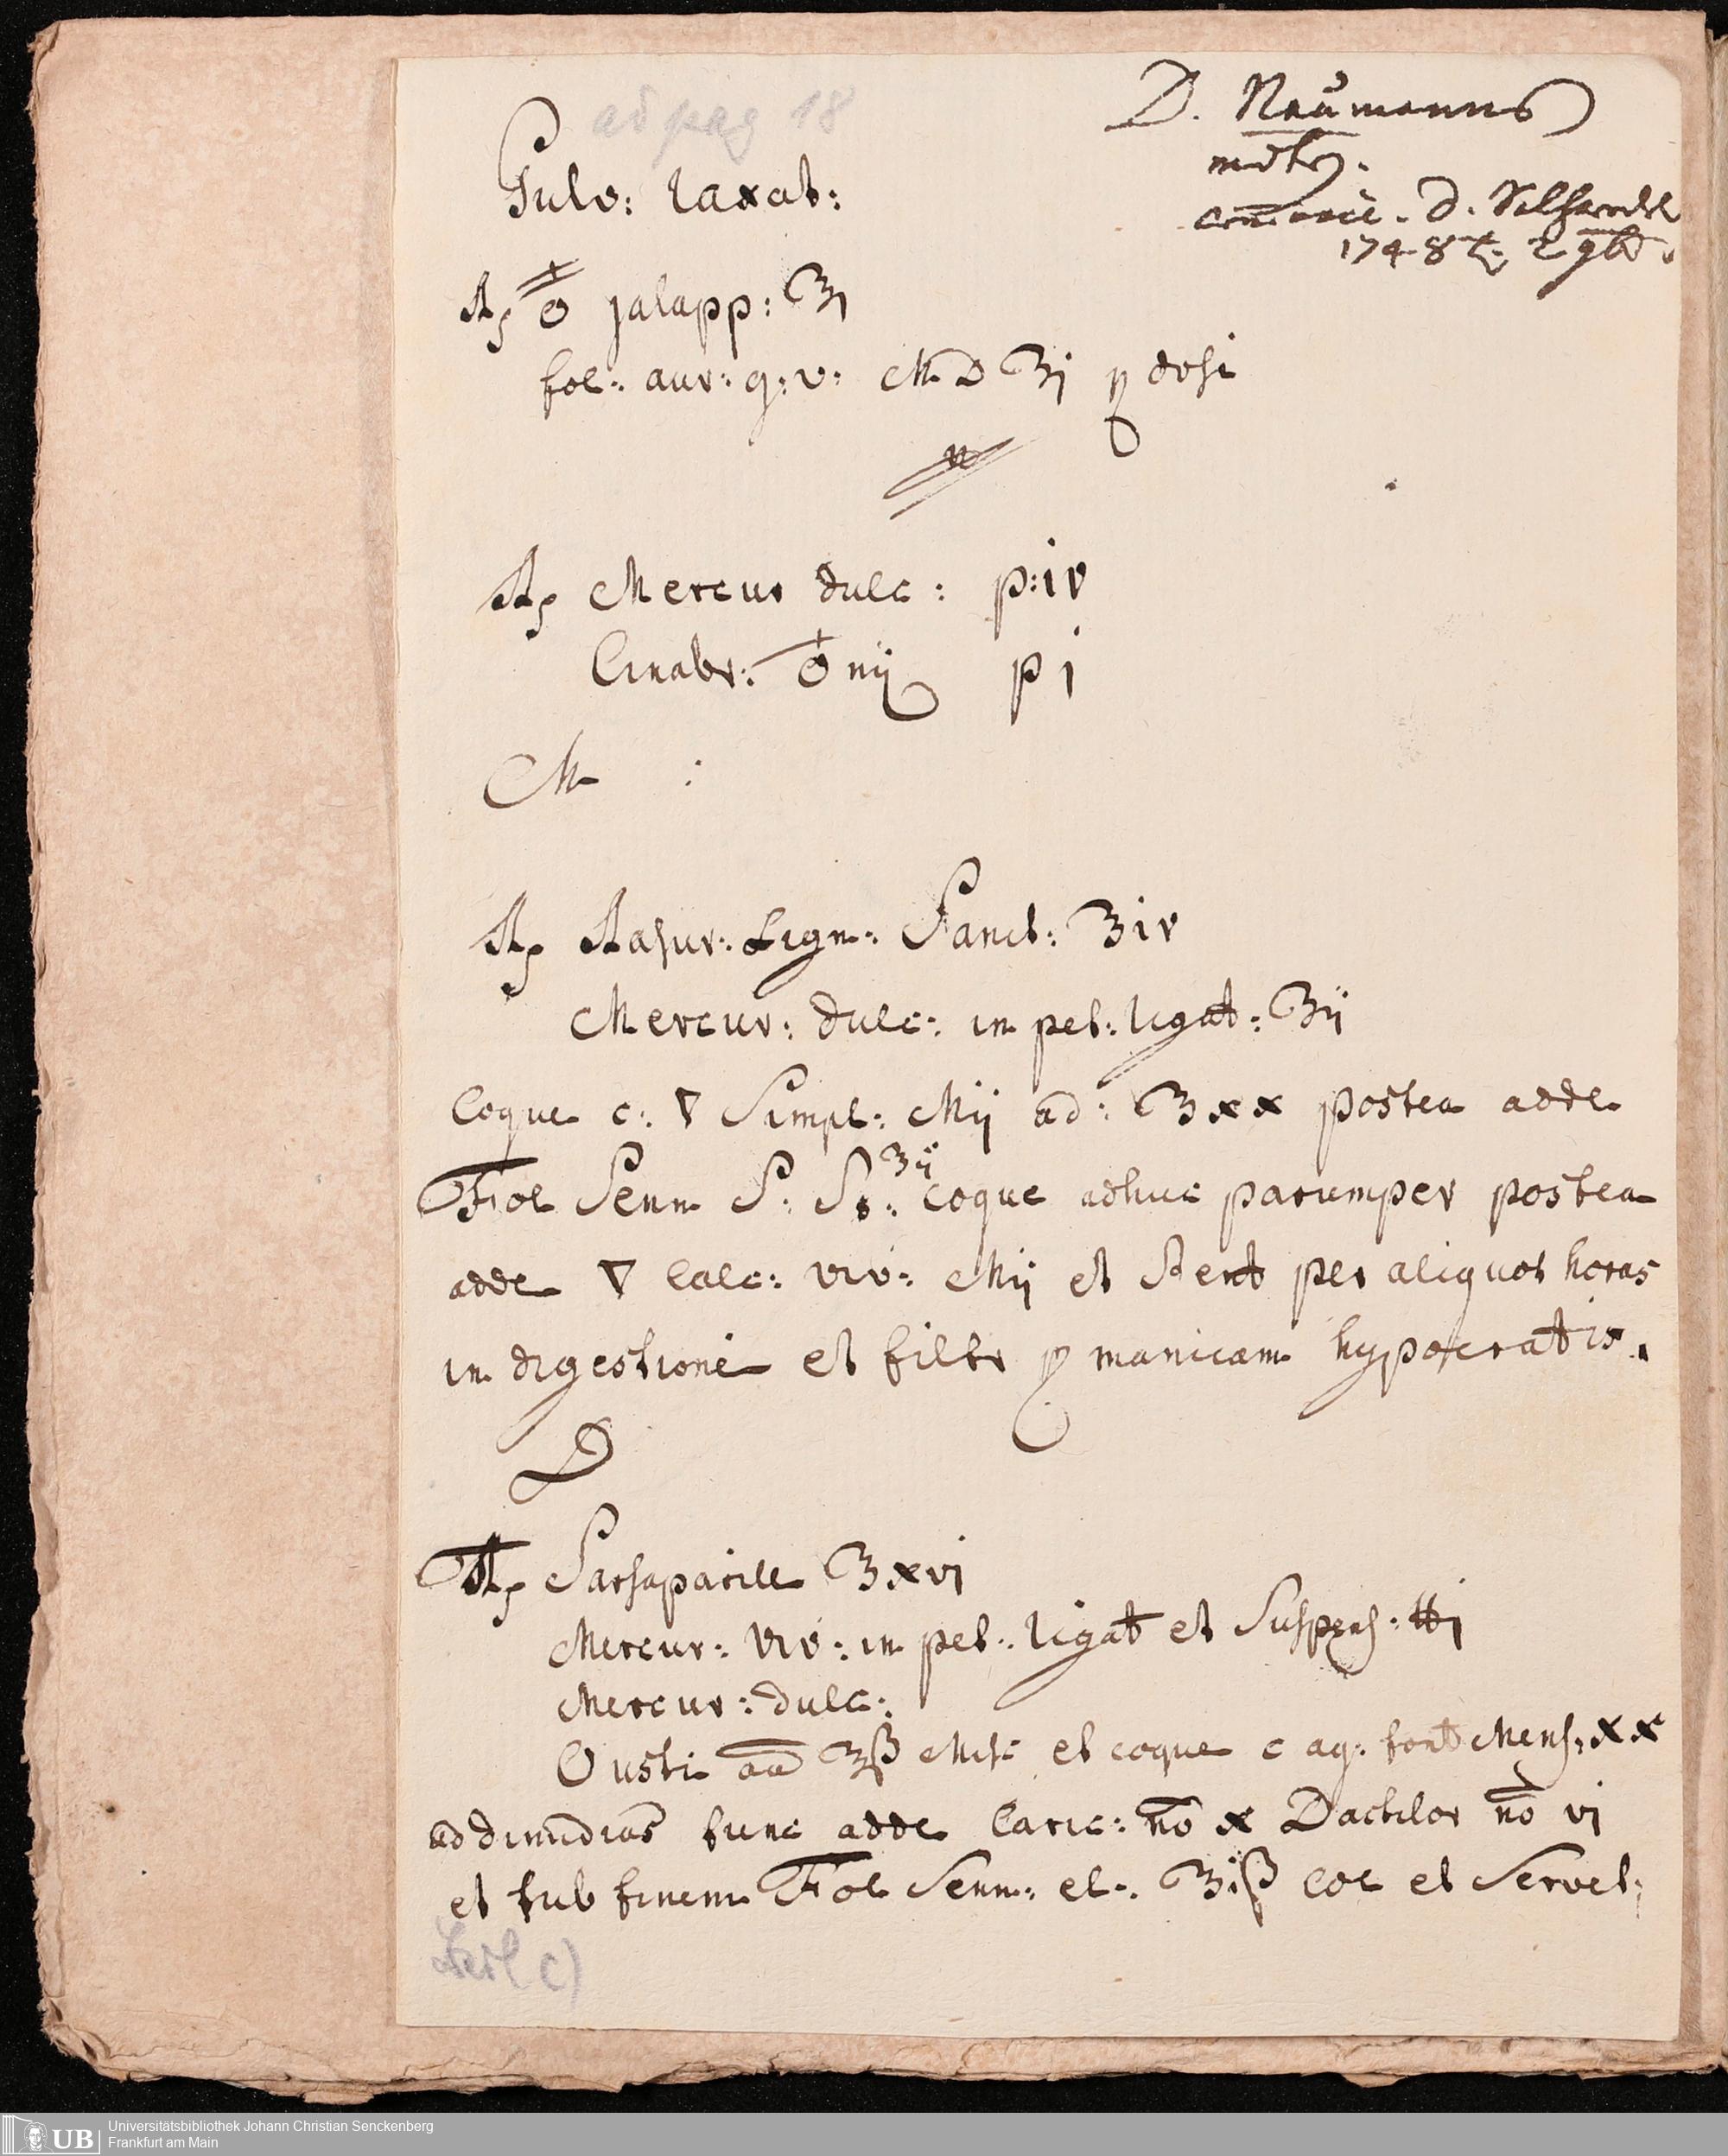 ad pag 18
D. Naumanns
1748
Pulv: laxat:
℞ ♁ jalapp: ʒj
fol: aur: q: v: M D ʒj ꝑ dosi
℞ Mercur dulc: p: iv
Cinabr: ♁nij p j
M :
℞ Rasur: Lign: Sanct: ʒiv
Mercur: dulc: in pet: ligat: ʒij
Coque c: ▽ Simpl: Mij ad: ʒxx postea adde
Fol Senn S: St: ʒij coque adhuc parumper postea
adde ▽ Calc: viv: Mij et Stent per aliquot horas
in digestione et filtr ꝑ manicam hypocratis.
D
℞ Sarsaparill ʒxvj
Mercur: viv: in pet: ligat et Suspens: ℔j
Mercur: dulc:
Usti āā ʒß Misc et coque c aq: font Mens: xx
ad dimidias tunc adde Caric: no x Dactilor no vj
et sub finem Fol Senn: el: ʒiß Col et Servet:
Teil c)
UB Universitätsbibliothek Johann Christian Senckenberg
Frankfurt am Main